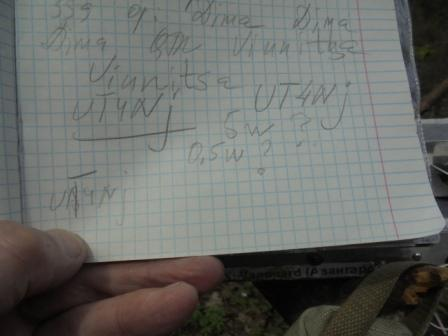 339 q. Dima Dima
Dima QTH Vinnitsa
Vinnitsa
UT4Nj UT4Nj
5w ?
0,5w ?
UT4Nj
Vanguard (Азангард